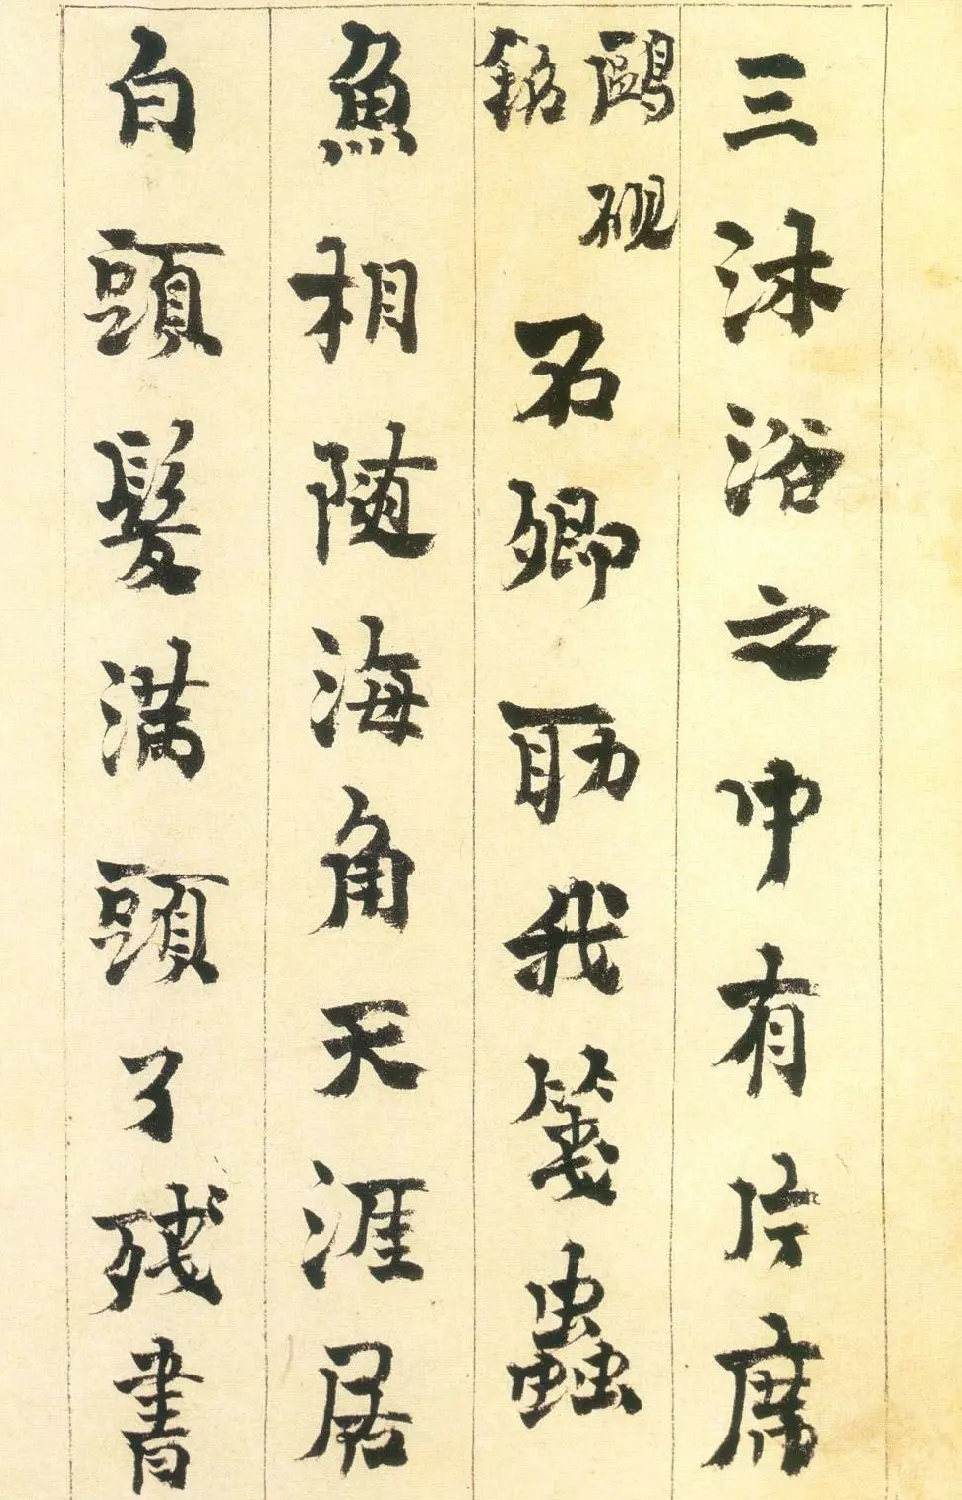 三沐浴之中有片席
鷗硯銘
石卿助我箋蟲
魚相隨海角天涯居
白頭髮滿頭了殘書